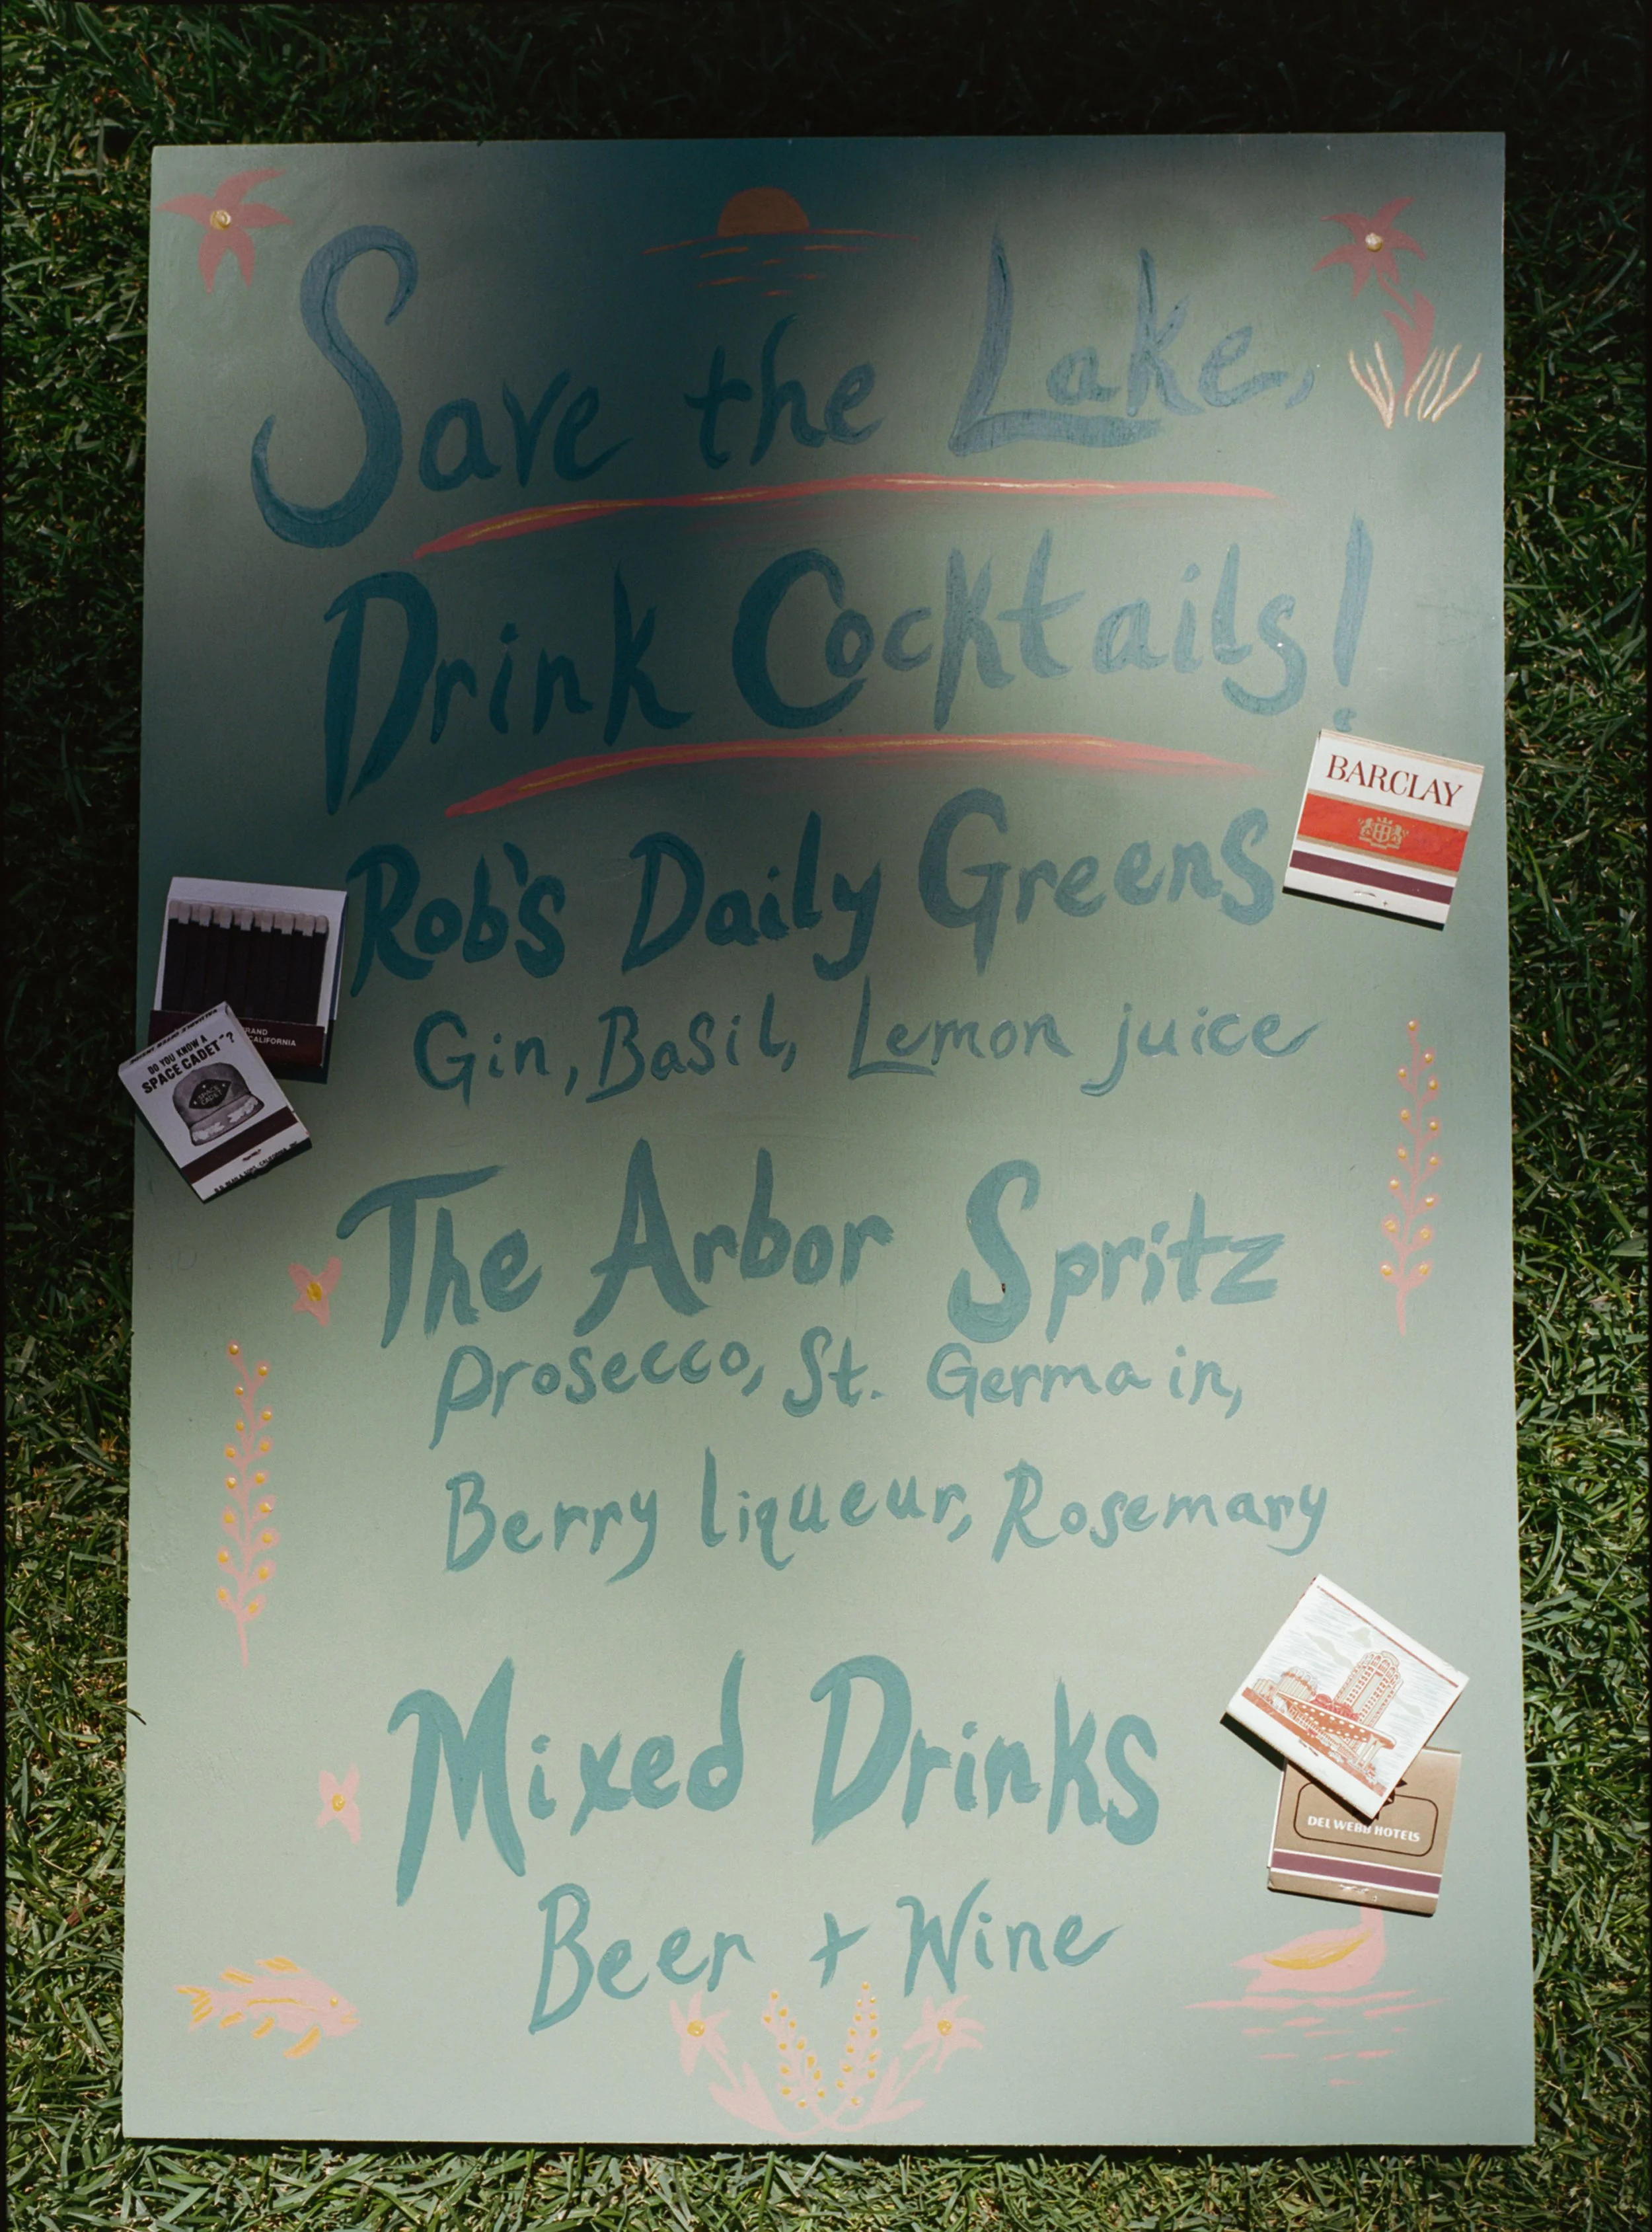 Save the Lake,
Drink Cocktails!
Rob's Daily Greens
Gin, Basil, Lemon juice
The Arbor Spritz
Prosecco, St. Germain,
Berry liqueur, Rosemary
Mixed Drinks
Beer + Wine
BARCLAY
CALIFORNIA
DO YOU KNOW A
SPACE CADET"?
SPACE
CADET
DEL WEBB HOTELS